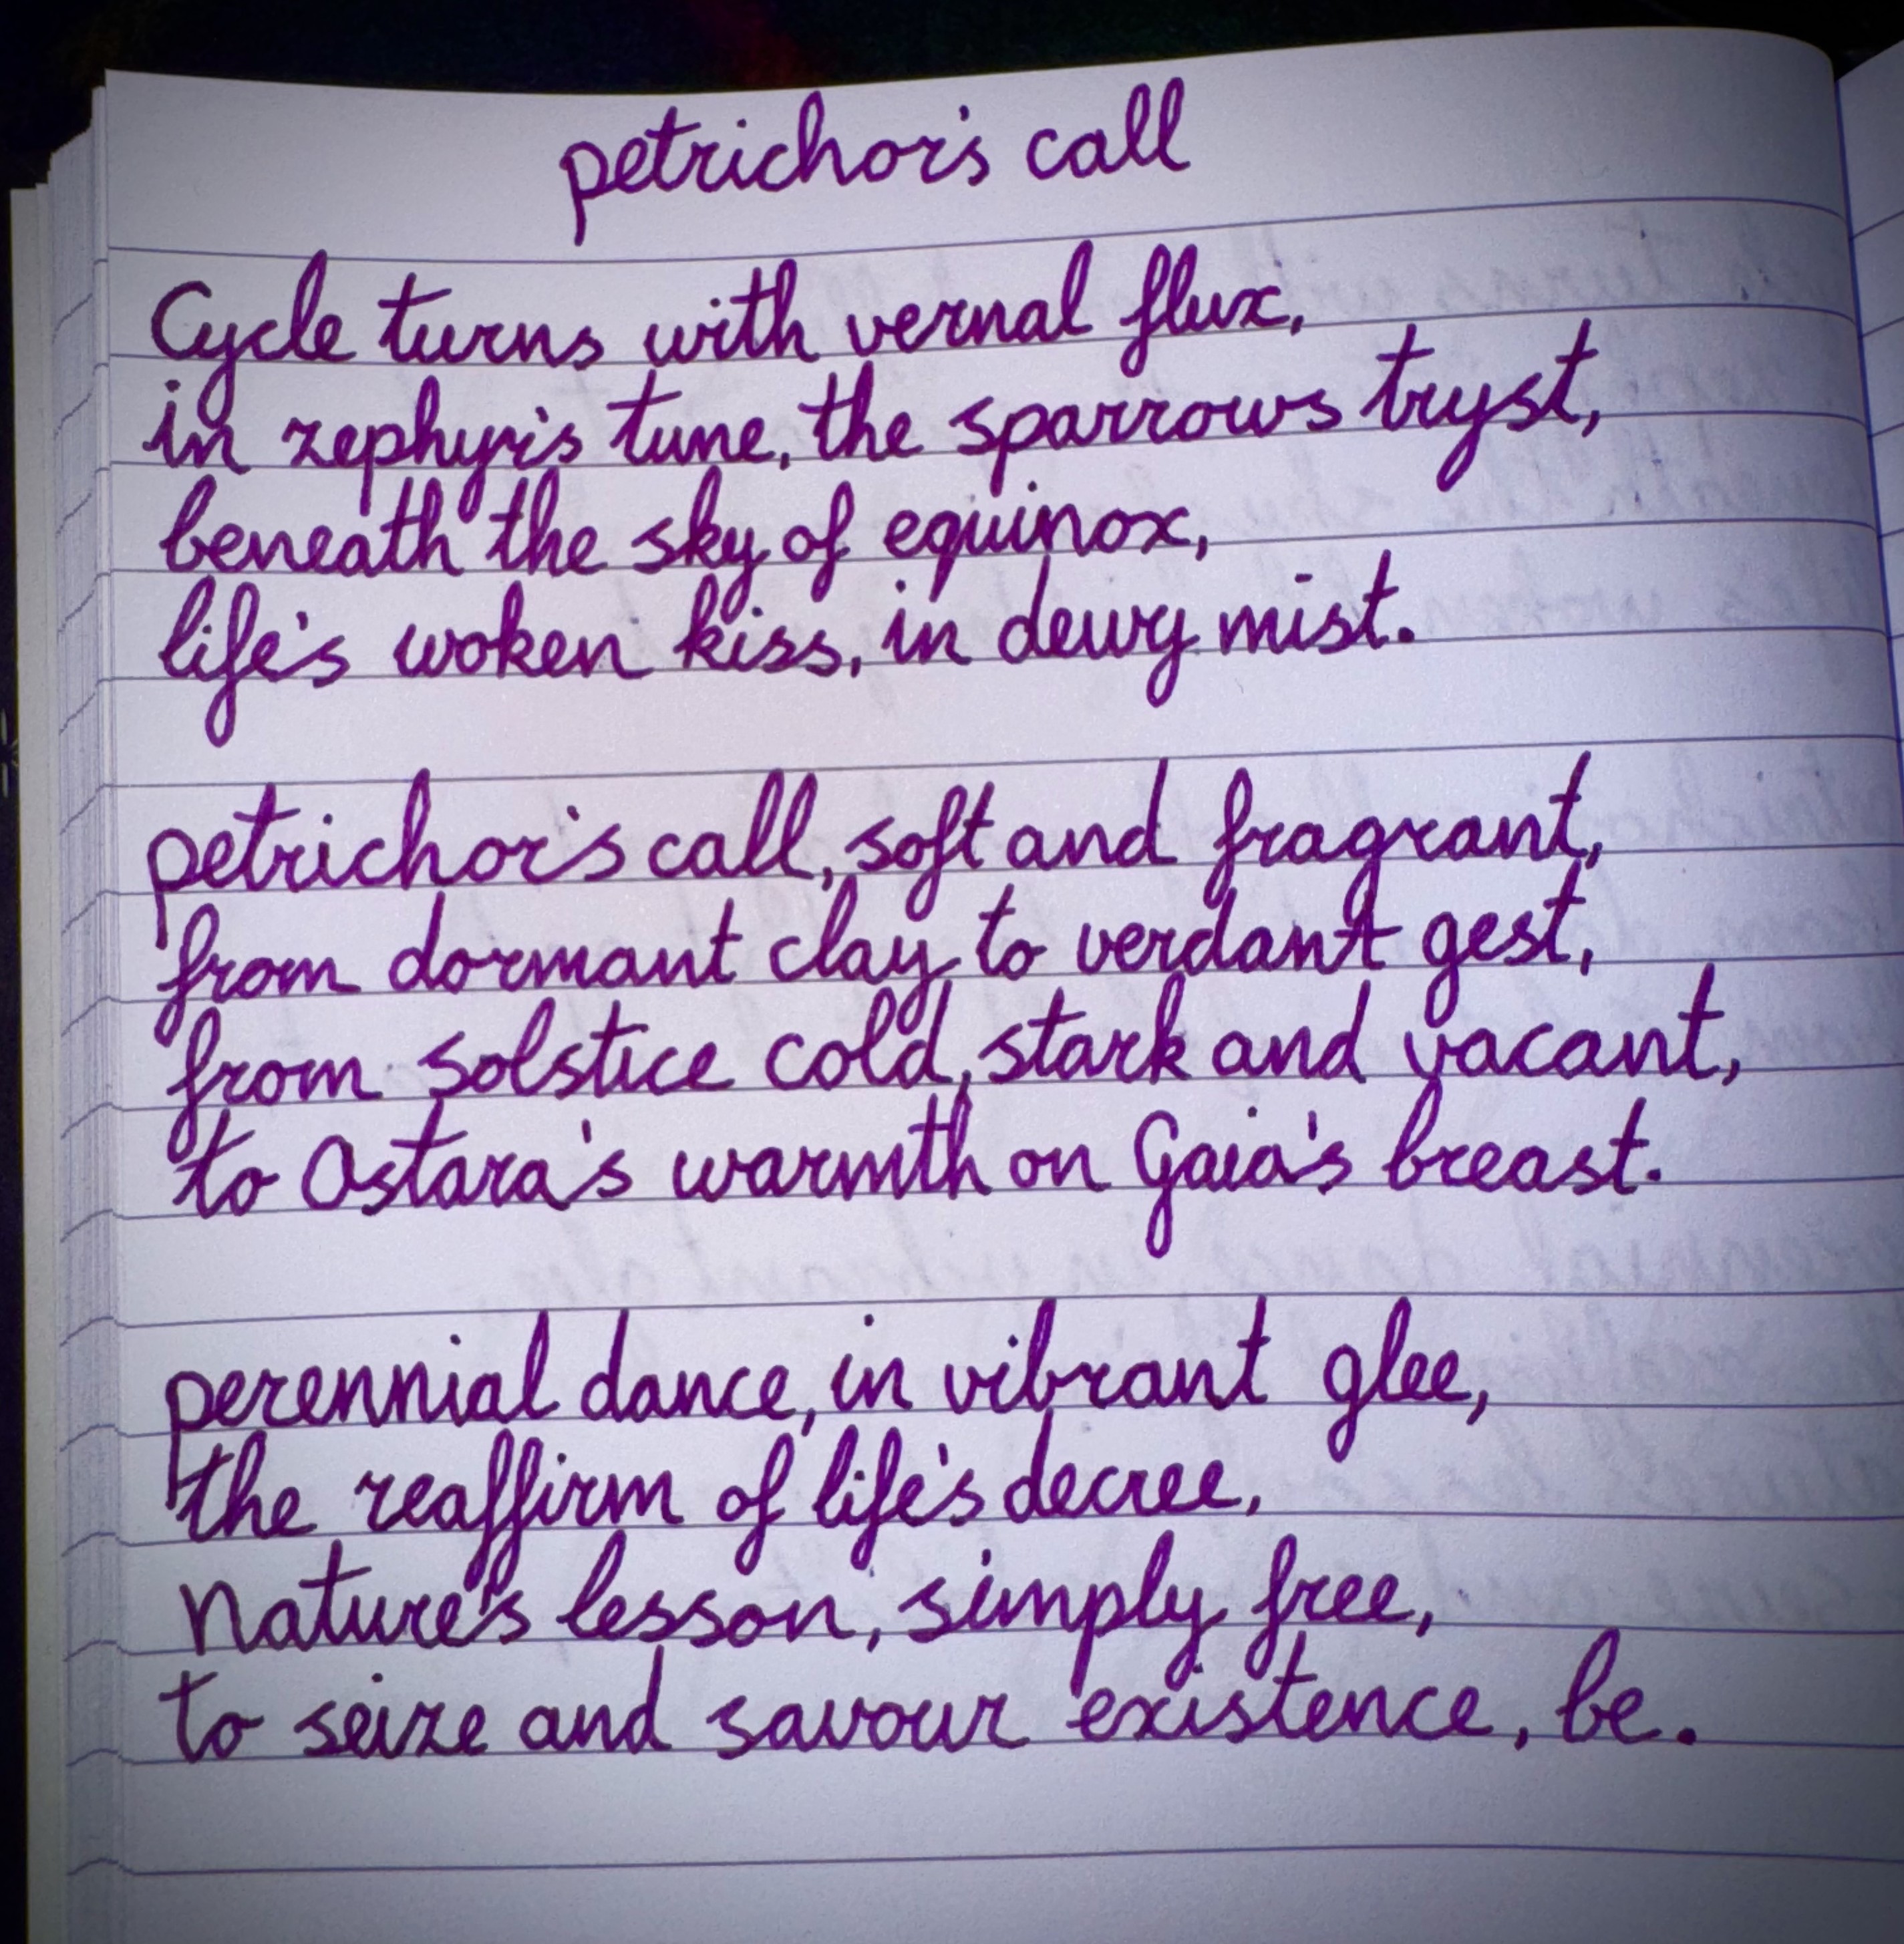 petrichor's call
Cycle turns with vernal flux,
in zephyr's tune, the sparrows tryst,
beneath the sky of equinox,
life's woken kiss, in dewy mist.
petrichor's call, soft and fragrant,
from dormant clay to verdant gest,
from solstice cold, stark and vacant,
to Ostara's warmth on Gaia's breast.
perennial dance, in vibrant glee,
the reaffirm of life's decree,
Nature's lesson, simply free,
to seize and savour existence, be.